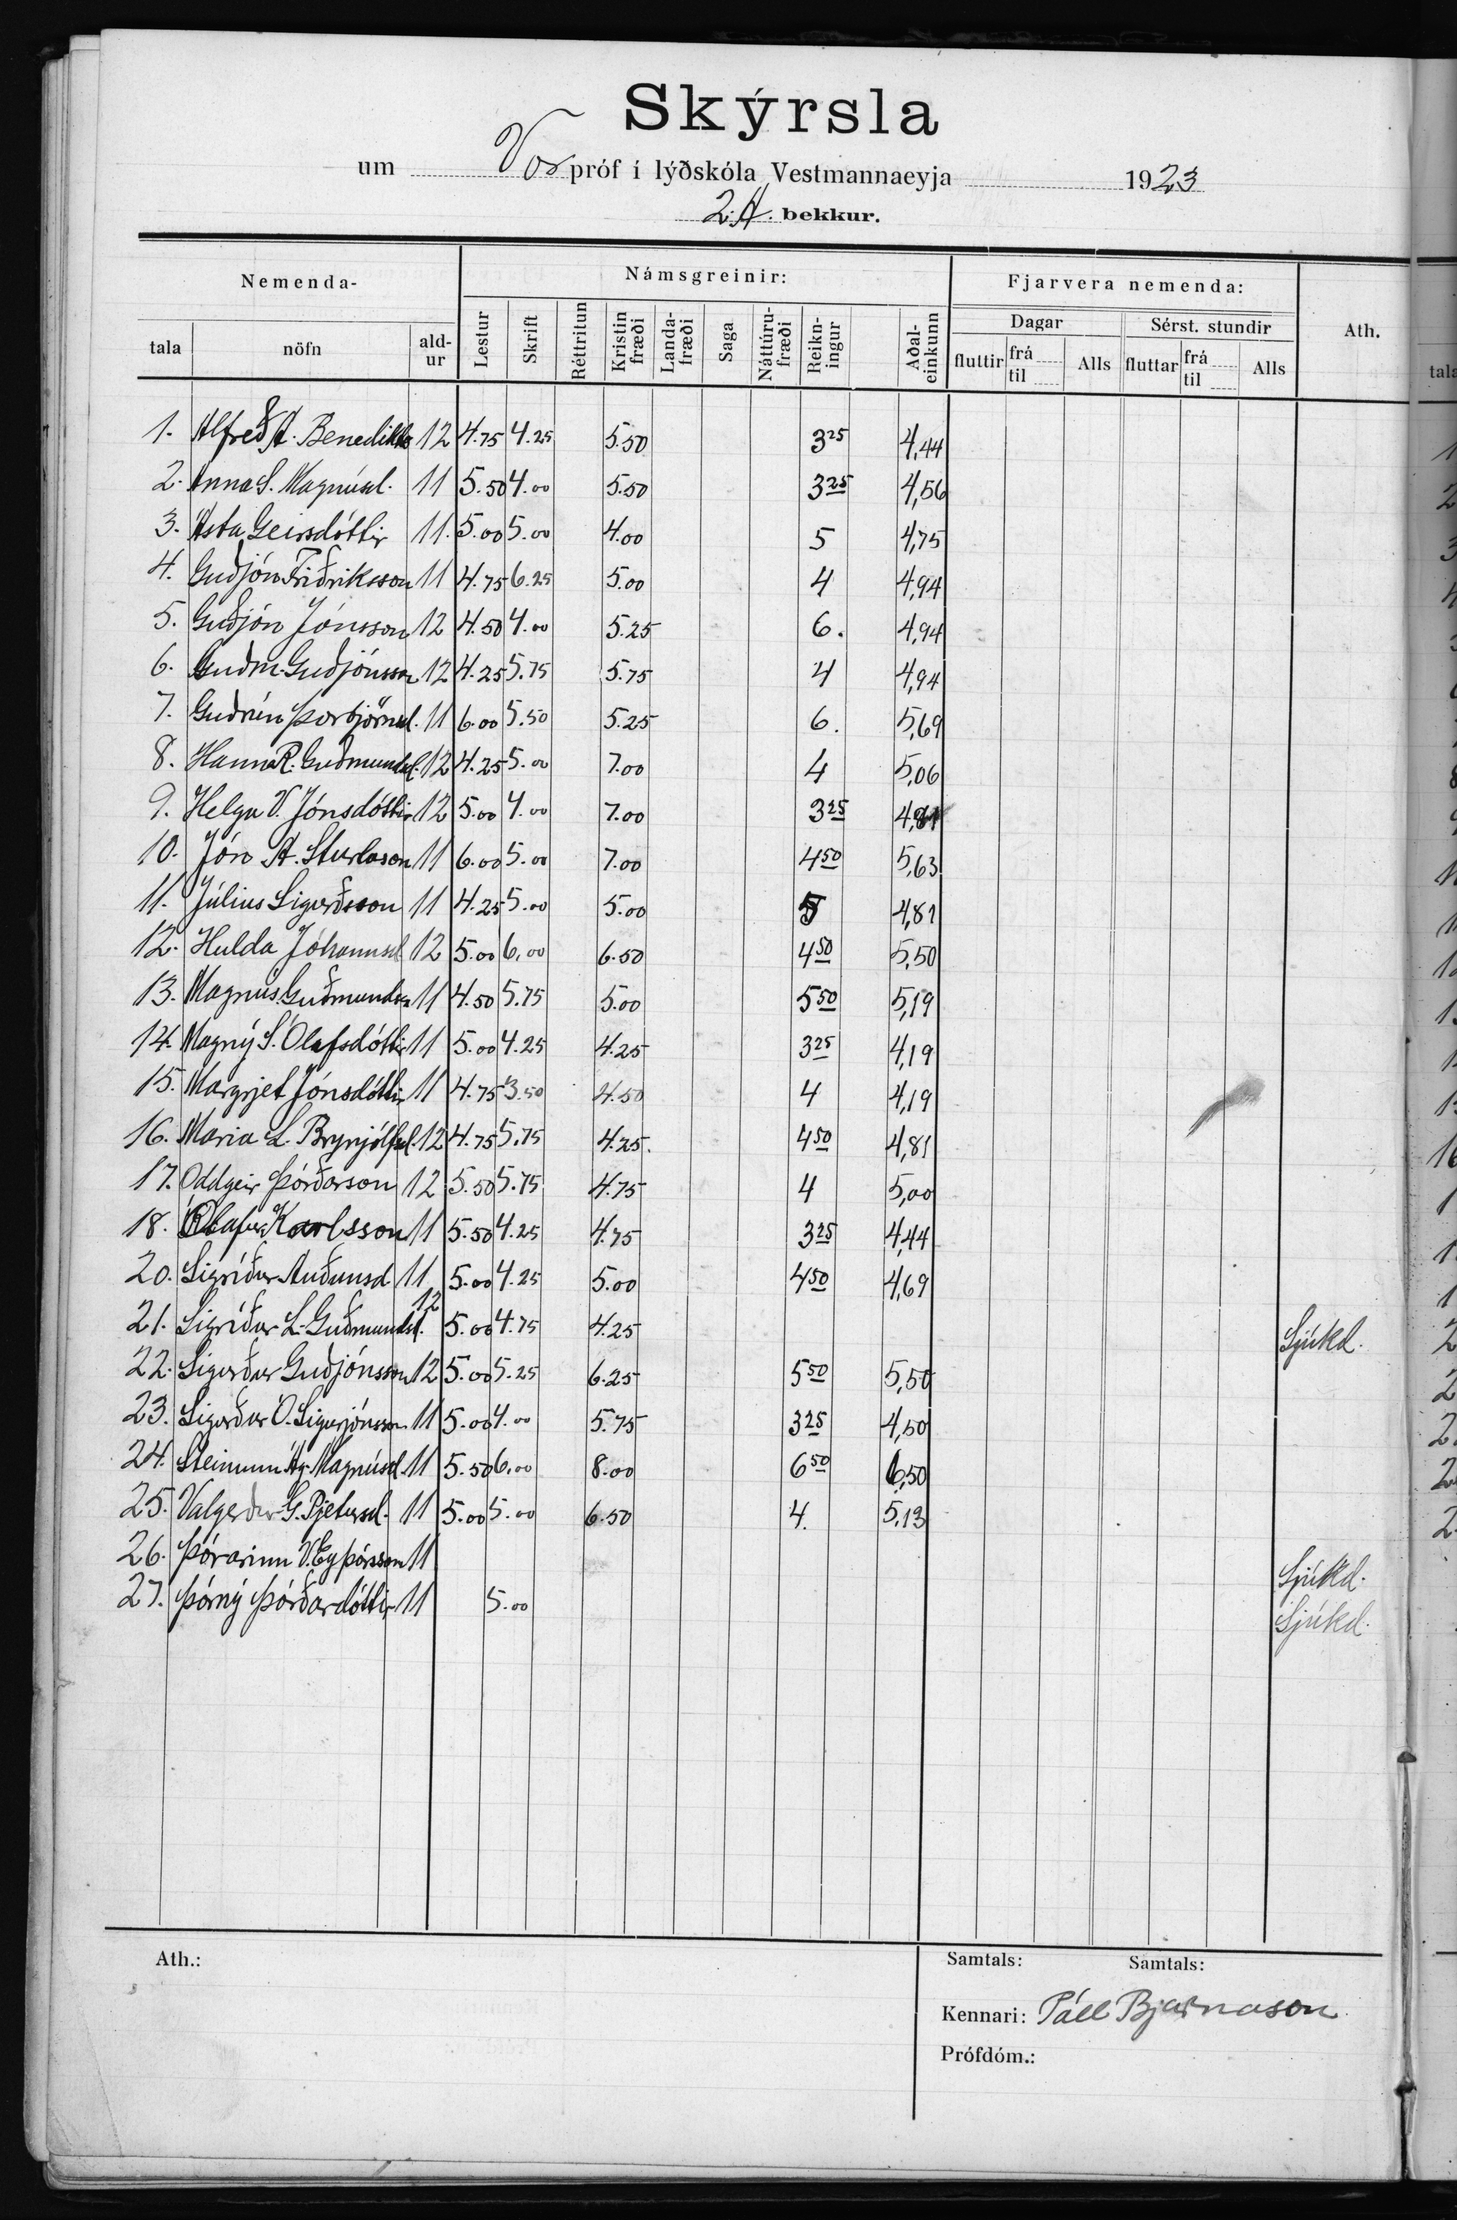 Skýrsla
um Vor próf í lýðskóla Vestmannaeyja 1923
2. A. bekkur.
Nemenda- Námsgreinir: Fjarvera nemenda: Ath.
tala nöfn ald-ur Lestur Skrift Réttritun Kristin fræði Landa-fræði Saga Náttúru-fræði Reikn-ingur Aðal-einkunn Dagar Sérst. stundir
fluttir frá til Alls fluttar frá til Alls
1. Alfreð A. Benedikts 12 4.75 4.25 5.50 3 25 4,44
2. Anna S. Magnúsd. 11 5.50 4.00 5.50 3 25 4,56
3. Ásta Geirsdóttir 11. 5.00 5.00 4.00 5 4,75
4. Guðjón Friðriksson 11 4.75 6.25 5.00 4 4,94
5. Guðjón Jónsson 12 4.50 4.00 5.25 6. 4,94
6. Guðm. Guðjónsson 12 4.25 5.75 5.75 4 4,94
7. Guðrún Þorbjörnsd. 11 6.00 5.50 5.25 6. 5,69
8. Hanna R. Guðmundsd. 12 4.25 5.00 7.00 4 5,06
9. Helga V. Jónsdóttir 12 5.00 4.00 7.00 3 25 4,81
10. Jón A. Sturlason 11 6.00 5.00 7.00 4 50 5,63
11. Júlíus Sigurðsson 11 4.25 5.00 5.00 5 4,81
12. Hulda Jóhannsd 12 5.00 6.00 6.50 4 50 5,50
13. Magnús Guðmundss 11 4.50 5.75 5.00 5 50 5,19
14. Magný S. Ólafsdóttir 11 5.00 4.25 4.25 3 25 4,19
15. Margrjet Jónsdóttir 11 4.75 3.50 4.50 4 4,19
16. Maria L. Brynjólfsd. 12 4.75 5.75 4.25. 4 50 4,81
17. Oddgeir Þórðarson 12 5.50 5.75 4.75 4 5,00
18. Ólafur Karlsson 11 5.50 4.25 4.75 3 25 4,44
20. Sigríður Auðunsd 11 5.00 4.25 5.00 4 50 4,69
21. Sigríður L. Guðmundsd. 12 5.00 4.75 4.25 Sjúkd.
22. Sigurður Guðjónsson 12 5.00 5.25 6.25 5 50 5,50
23. Sigurður Ó. Sigurjónsson 11 5.00 4.00 5.75 3 25 4,50
24. Steinunn Ág. Magnúsd. 11 5.50 6.00 8.00 6 50 6,50
25. Valgerður G. Pjetursd. 11 5.00 5.00 6.50 4. 5,13
26. Þórarinn V. Eyþórsson 11 Sjúkd.
27. Þórný Þórðardóttir 11 5.00 Sjúkd.
Ath.: Samtals: Samtals:
Kennari: Páll Bjarnason
Prófdóm.: